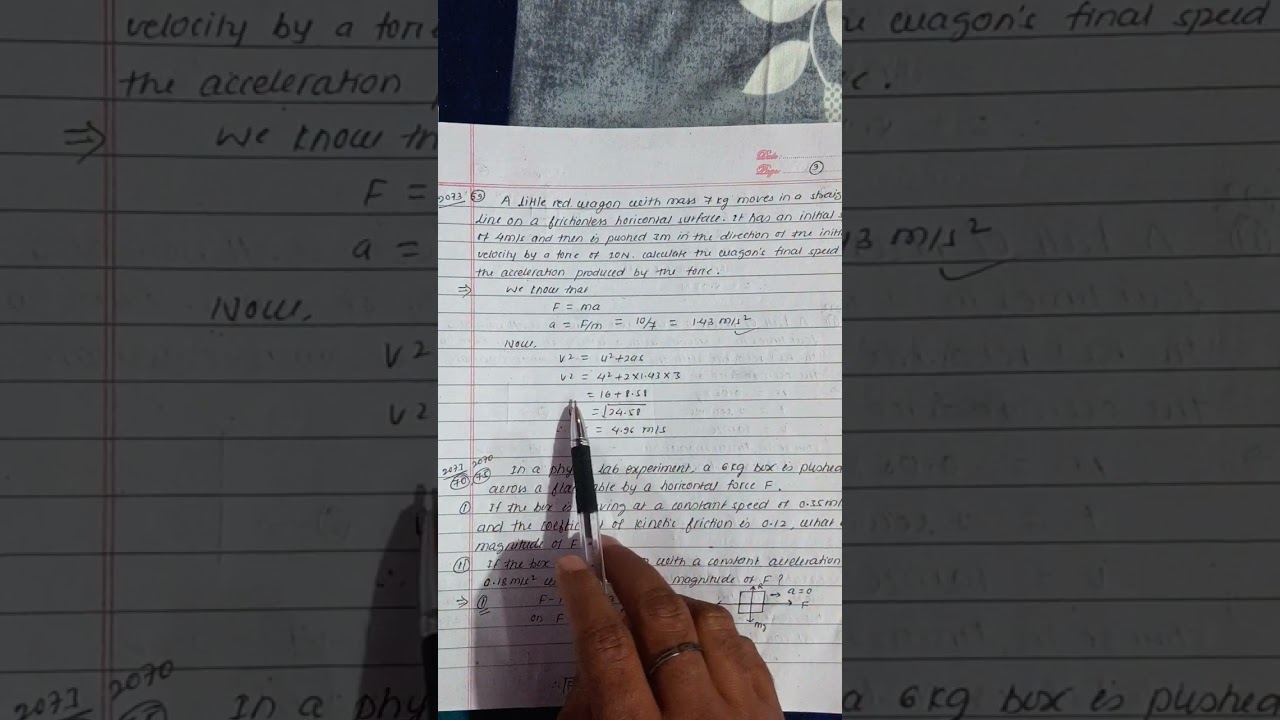 Date
Page 3
2073 A little red wagon with mass 7 kg moves in a straig
line on a frictionless horizontal surface. It has an initial
of 4m/s and then is pushed 3m in the direction of the initi
velocity by a force of 10N. calculate the wagon's final speed
the acceleration produced by the force.
⇒ We know that
F = ma
a = F/m = 10/7 = 1.43 m/s²
Now,
v² = u²+2as
v² = 4²+2×1.43×3
= 16+8.58
= √24.58
= 4.96 m/s
2073 2070 In a phy lab experiment, a 6kg box is pushed
across a fla able by a horizontal force F.
(i) If the box is ving at a constant speed of 0.35m/
and the coeffic t of kinetic friction is 0.12, what
magnitude of F
(ii) If the box with a constant acceleration
0.18 m/s² magnitude of F?
⇒ (i) F-
on F
R
a=0
F
mg